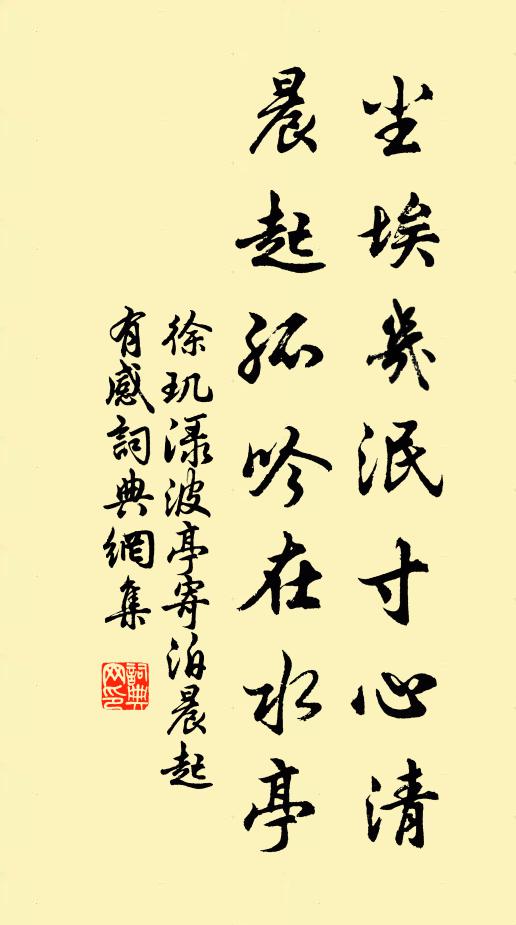 尘埃几泯寸心清
晨起孤吟在水亭
徐玑漾波亭寄泊晨起
有感词典網集
詞典網印